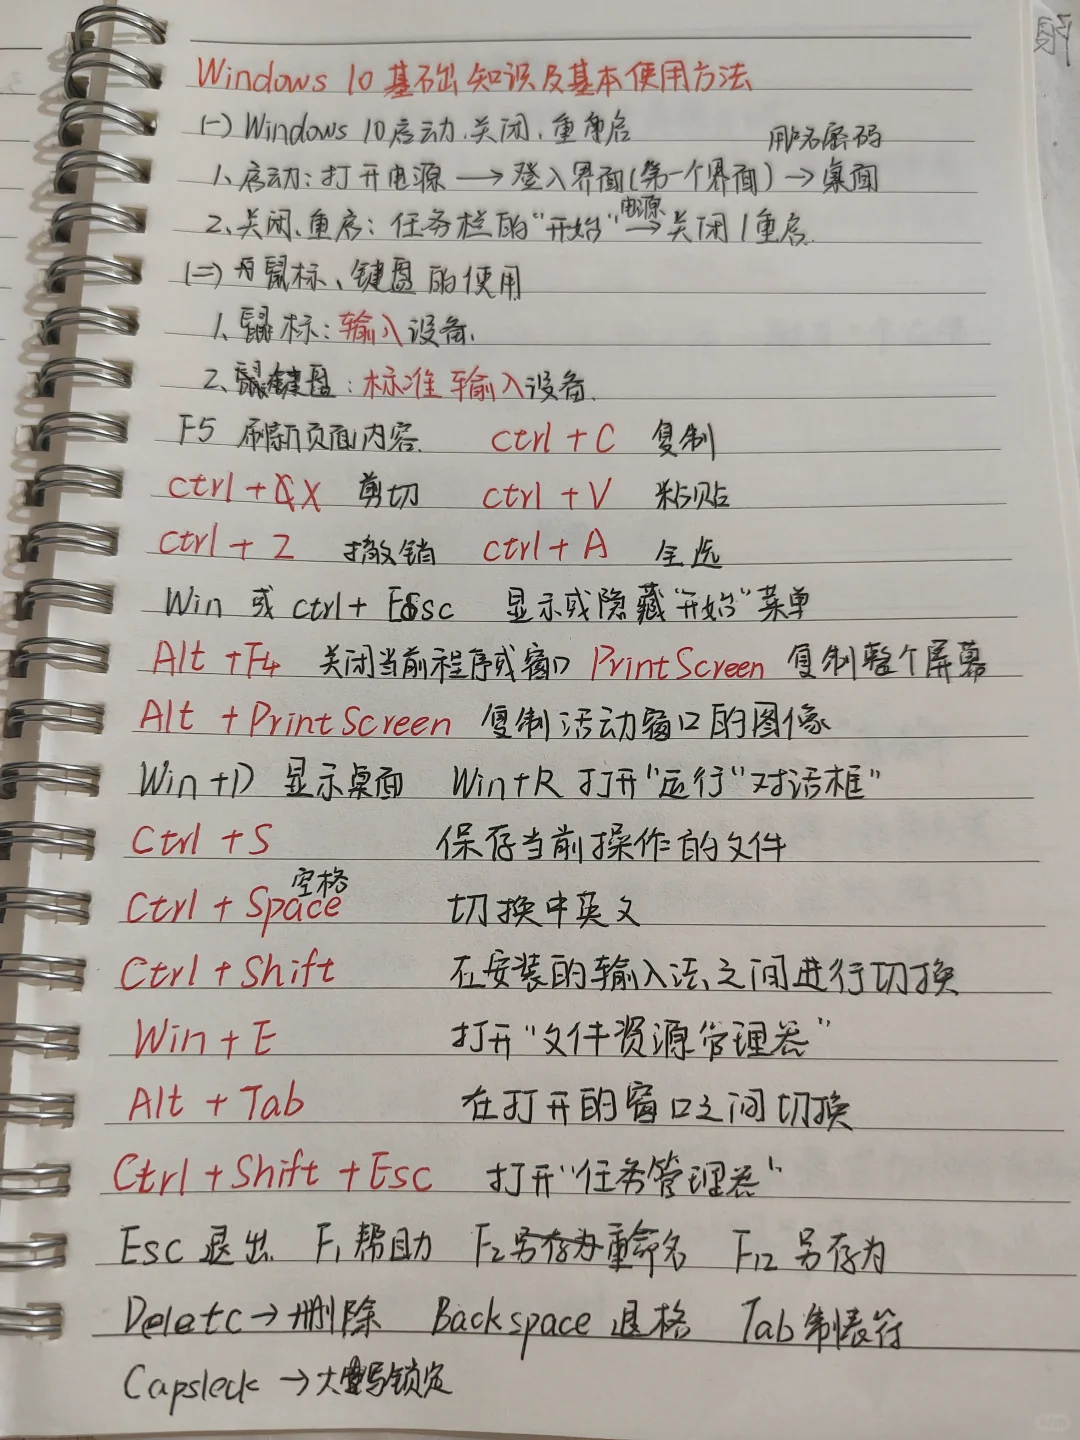 Windows 10基础知识及基本使用方法
(一) Windows 10启动、关闭、重启
用户名密码
1、启动：打开电源 → 登入界面(第一个界面) → 桌面
电源
2、关闭、重启：任务栏的"开始" → 关闭/重启
(二) 鼠标、键盘的使用
1、鼠标：输入设备.
2、键盘：标准输入设备.
F5 刷新页面内容 ctrl + C 复制
ctrl + X 剪切 ctrl + V 粘贴
ctrl + Z 撤销 ctrl + A 全选
Win 或 ctrl + Esc 显示或隐藏"开始"菜单
Alt + F4 关闭当前程序或窗口 PrintScreen 复制整个屏幕
Alt + PrintScreen 复制活动窗口的图像
Win + D 显示桌面 Win + R 打开"运行"对话框"
Ctrl + S 保存当前操作的文件
空格
Ctrl + Space 切换中英文
Ctrl + Shift 在安装的输入法之间进行切换
Win + E 打开"文件资源管理器"
Alt + Tab 在打开的窗口之间切换
Ctrl + Shift + Esc 打开"任务管理器"
Esc 退出 F1 帮助 F2 另存为 重命名 F12 另存为
Delete → 删除 Backspace 退格 Tab 制表符
Capslock → 大写锁定